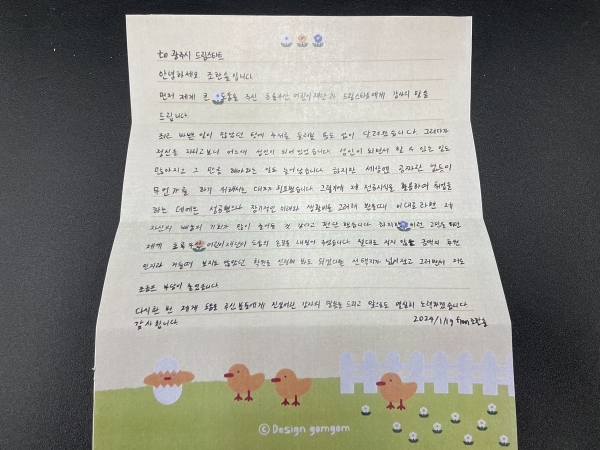 to 광주시 드림스타트
안녕하세요 조한솔입니다
먼저 제게 큰 도움을 주신 초록우산 어린이재단과 드림스타트에게 감사의 말을
드립니다
최근 바쁜 일이 많았던 탓에 주위를 둘러볼 틈도 없이 달려왔습니다 그러다가
정신을 차리고보니 어느새 성인이 되어있었습니다. 성인이 되면서 할 수 있는 일도
많아지고 그 만큼 해야하는 일도 늘어났습니다. 하지만 세상엔 공짜란 없듯이
무언가를 하기 위해서는 대가가 필요했습니다. 그렇게 제 전공지식을 활용하여 취업을
하는 데에는 성공했으나 장기적인 미래와 생활비를 고려해 봤을때 이대로라면 저
자신의 배움의 기회가 많이 줄어들 것 같다고 판단했습니다 하지만 이런 고민을 하던
제게 초록우산 어린이재단이 도움의 손길을 내밀어 주셨습니다. 절대로 적지 않은 금액의 후원
인지라 거들떠 보지도 않았던 학원도 신청해 봐도 되겠다는 선택지가 넓어졌고 그러면서 저도
조금은 부담이 줄었습니다.
다시한 번 제게 도움을 주신 분들에게 진심어린 감사의 말씀을 드리고 앞으로도 열심히 노력하겠습니다
감사합니다. 2024/1/19 from 조한솔
ⓒ Design gomgom